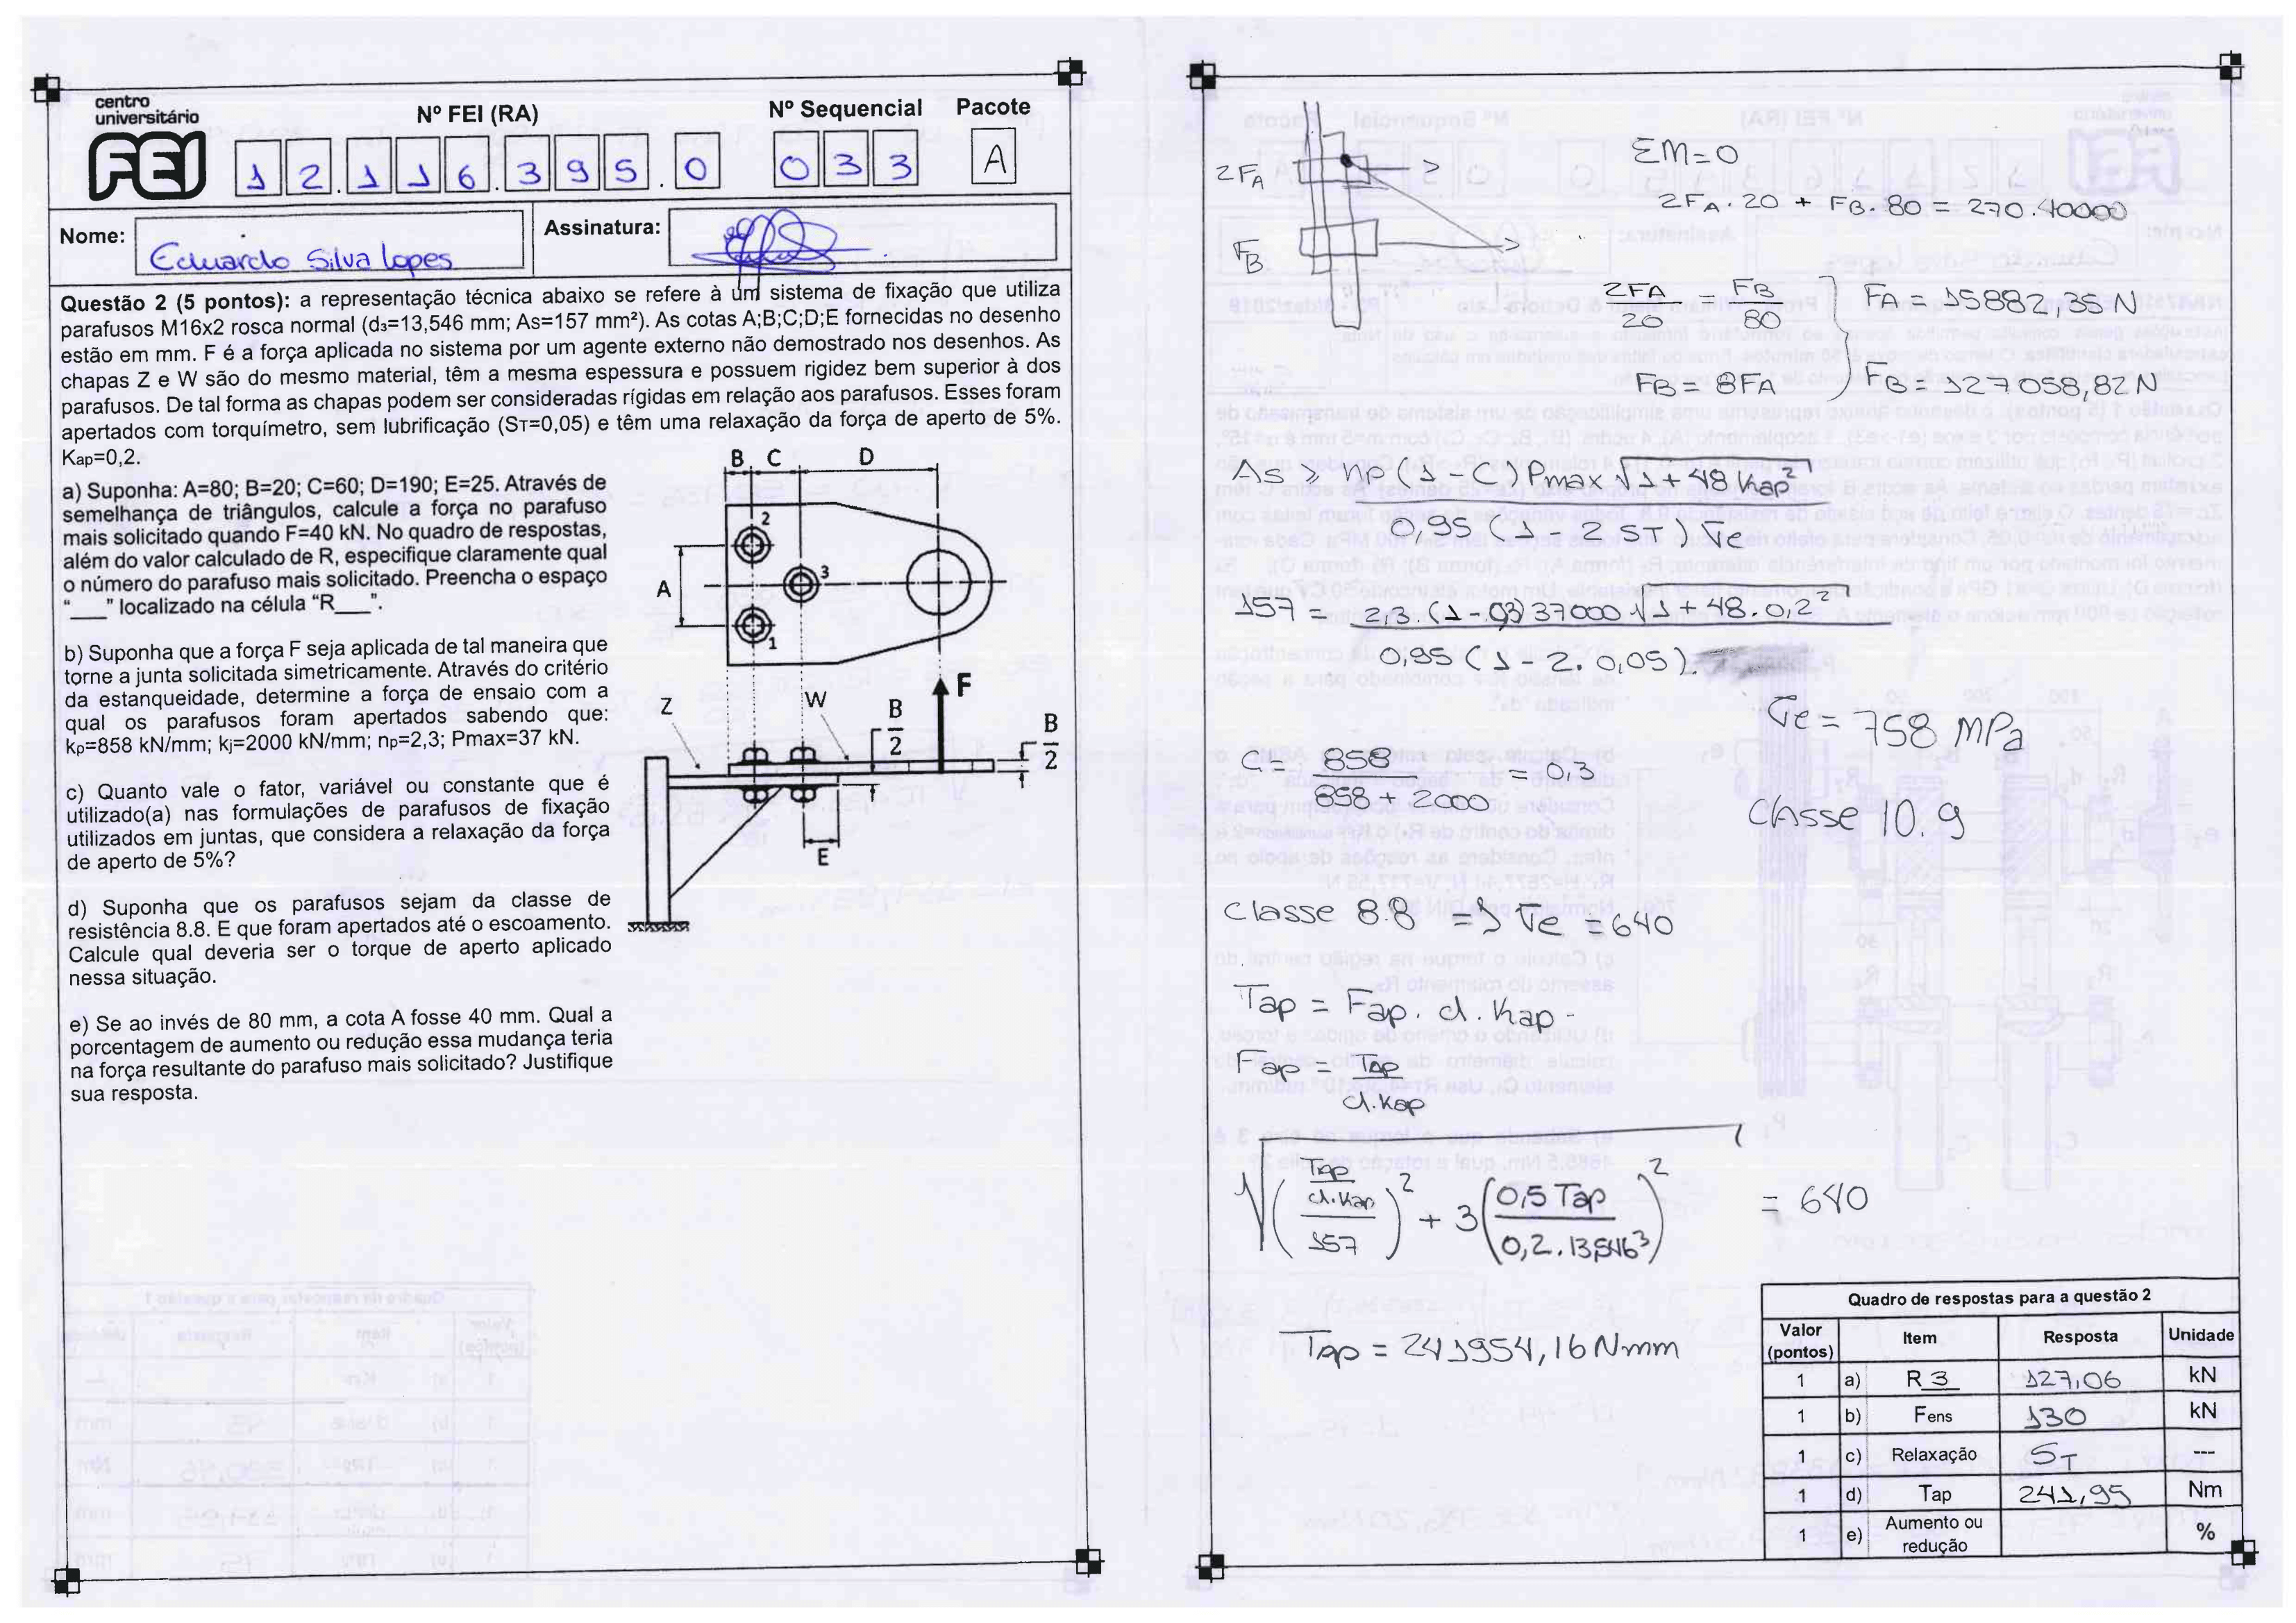 centro
universitário
FEI
Nº FEI (RA)
Nº Sequencial
Pacote
12.116.395.0
033
A
Nome:
Eduardo Silva Lopes
Assinatura:
Questão 2 (5 pontos): a representação técnica abaixo se refere à um sistema de fixação que utiliza
parafusos M16x2 rosca normal (d₃=13,546 mm; As=157 mm²). As cotas A;B;C;D;E fornecidas no desenho
estão em mm. F é a força aplicada no sistema por um agente externo não demostrado nos desenhos. As
chapas Z e W são do mesmo material, têm a mesma espessura e possuem rigidez bem superior à dos
parafusos. De tal forma as chapas podem ser consideradas rígidas em relação aos parafusos. Esses foram
apertados com torquímetro, sem lubrificação (ST=0,05) e têm uma relaxação da força de aperto de 5%.
Kap=0,2.
a) Suponha: A=80; B=20; C=60; D=190; E=25. Através de
semelhança de triângulos, calcule a força no parafuso
mais solicitado quando F=40 kN. No quadro de respostas,
além do valor calculado de R, especifique claramente qual
o número do parafuso mais solicitado. Preencha o espaço
"___" localizado na célula "R___".
b) Suponha que a força F seja aplicada de tal maneira que
torne a junta solicitada simetricamente. Através do critério
da estanqueidade, determine a força de ensaio com a
qual os parafusos foram apertados sabendo que:
kp=858 kN/mm; kj=2000 kN/mm; np=2,3; Pmax=37 kN.
c) Quanto vale o fator, variável ou constante que é
utilizado(a) nas formulações de parafusos de fixação
utilizados em juntas, que considera a relaxação da força
de aperto de 5%?
d) Suponha que os parafusos sejam da classe de
resistência 8.8. E que foram apertados até o escoamento.
Calcule qual deveria ser o torque de aperto aplicado
nessa situação.
e) Se ao invés de 80 mm, a cota A fosse 40 mm. Qual a
porcentagem de aumento ou redução essa mudança teria
na força resultante do parafuso mais solicitado? Justifique
sua resposta.
B C D
2
A
3
1
F
Z
W
B/2
B/2
E
2FA
FB
ΣM=0
2FA.20 + FB.80 = 270.40000
2FA/20 = FB/80
FA = 15882,35 N
FB = 8FA
FB = 127058,82 N
As ≥ np (1 - C) Pmax √1 + 48 Kap²
0,95 (1 - 2 ST) σe
157 = 2,3.(1-0,3) 37000 √1 + 48.0,2²
0,95 (1 - 2.0,05).
σe = 758 MPa
C = 858 / 858 + 2000 = 0,3
Classe 10.9
Classe 8.8 => σe = 640
Tap = Fap. d. Kap
Fap = Tap / d.Kap
√((Tap/d.Kap / 157)² + 3(0,5 Tap / 0,2.13,546³)²) = 640
Tap = 241954,16 Nmm
Quadro de respostas para a questão 2
Valor (pontos) Item Resposta Unidade
1 a) R 3 127,06 kN
1 b) Fens 130 kN
1 c) Relaxação ST ---
1 d) Tap 241,95 Nm
1 e) Aumento ou redução %